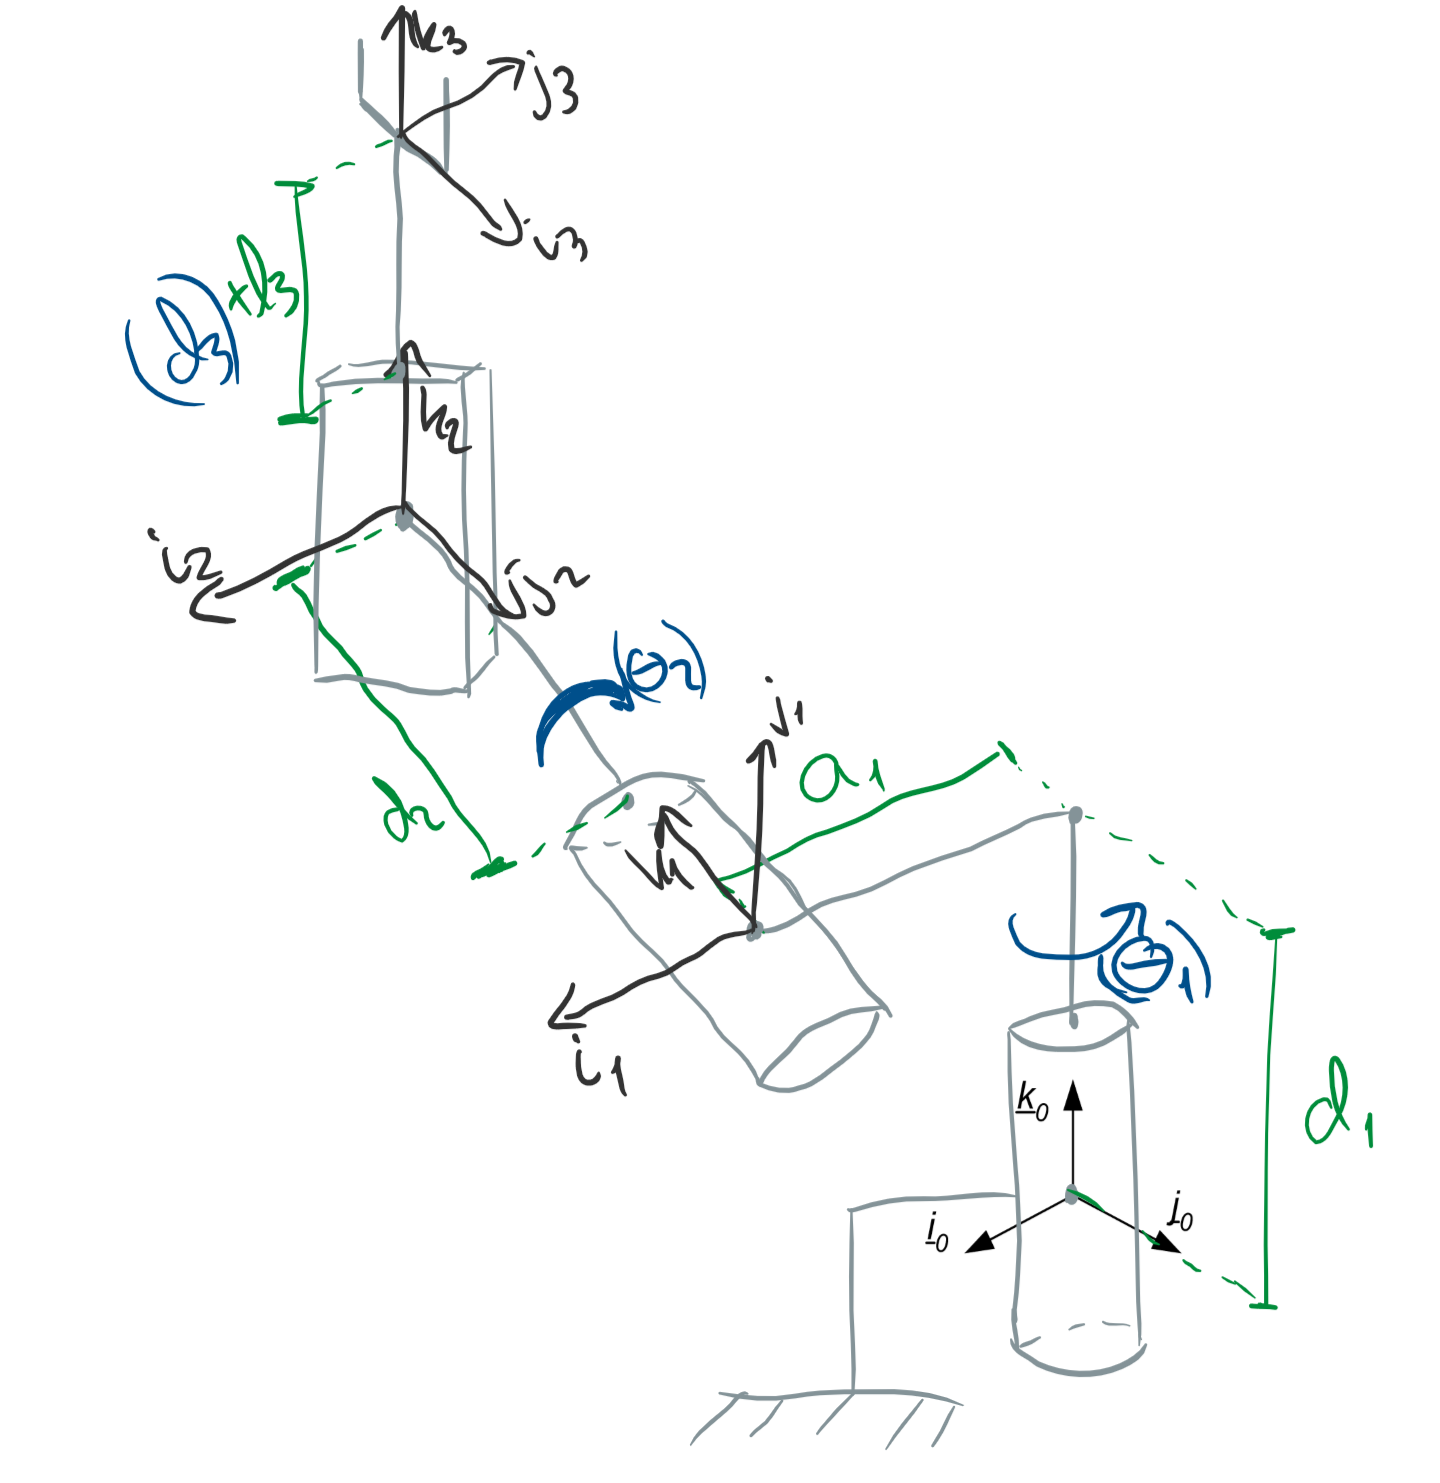 k3
j3
i3
(d3)+l3
k2
i2
j2
(θ2)
j1
a1
d2
k1
(θ1)
i1
k0
d1
i0
j0